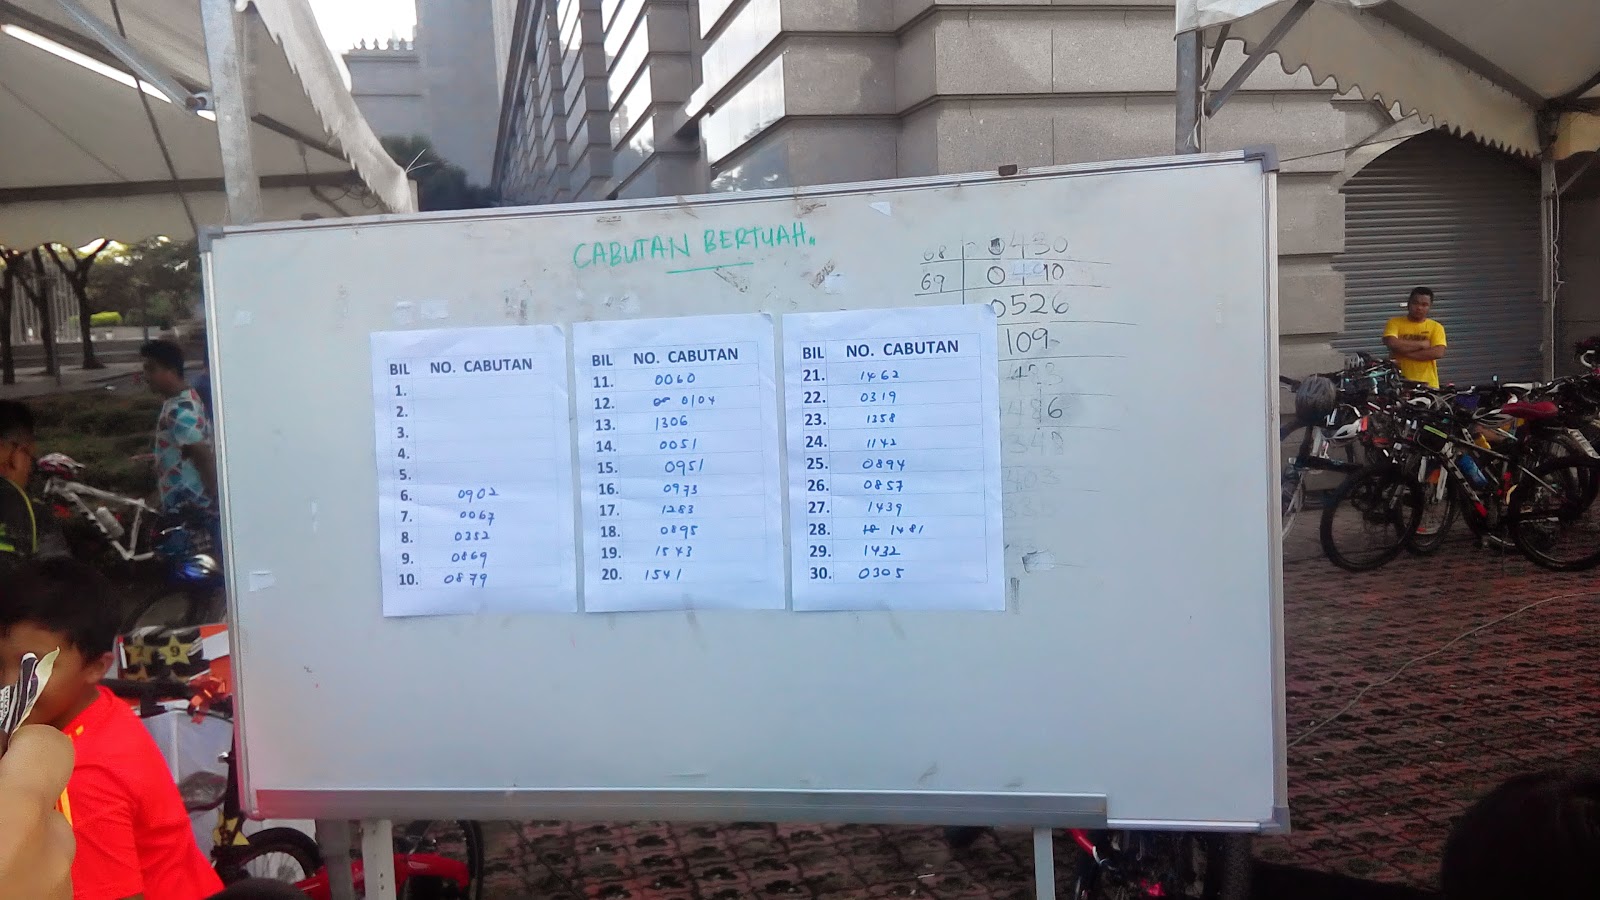 CABUTAN BERTUAH.
68 0430
69 0490
0526
109
BIL NO. CABUTAN
1.
2.
3.
4.
5.
6. 0902
7. 0067
8. 0352
9. 0869
10. 0879
BIL NO. CABUTAN
11. 0060
12. 0104
13. 1306
14. 0051
15. 0951
16. 0973
17. 1283
18. 0895
19. 1543
20. 1541
BIL NO. CABUTAN
21. 1462
22. 0319
23. 1358
24. 1142
25. 0894
26. 0857
27. 1439
28. 1481
29. 1432
30. 0305